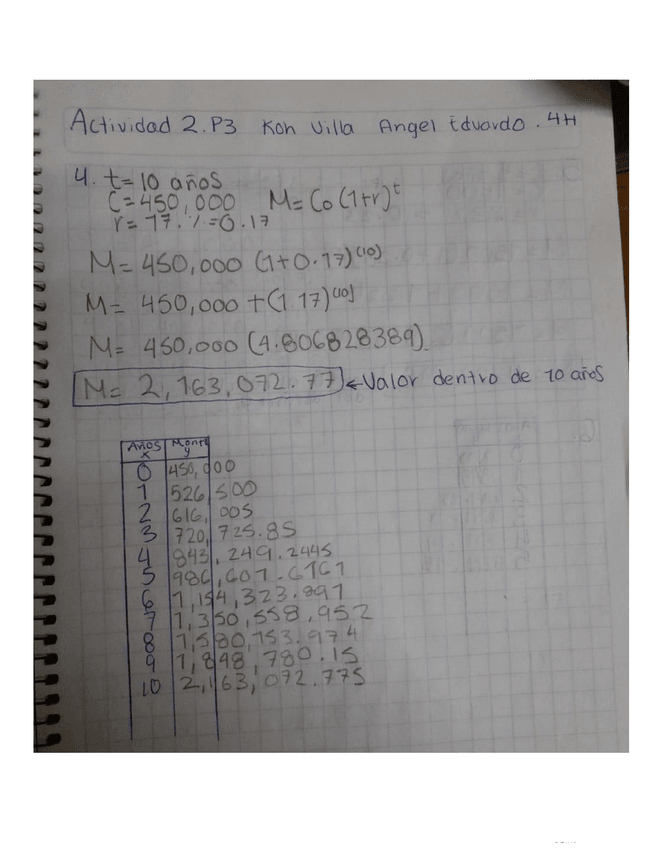 Actividad 2.P3 Koh Villa Angel Eduardo. 4H
4. t=10 años
C=450,000 M=Co(1+r)^t
r=17%=0.17
M=450,000 (1+0.17)^(10)
M= 450,000 +(1.17)^(10)
M= 450,000 (4.806828389)
M= 2,163,072.77 ←Valor dentro de 10 años
Años x
y
0 450,000
1 526,500
2 616,005
3 720,725.85
4 843,249.2445
5 986,601.6161
6 1,154,323.891
7 1,350,558.952
8 1,580,153.974
9 1,848,780.15
10 2,163,072.775